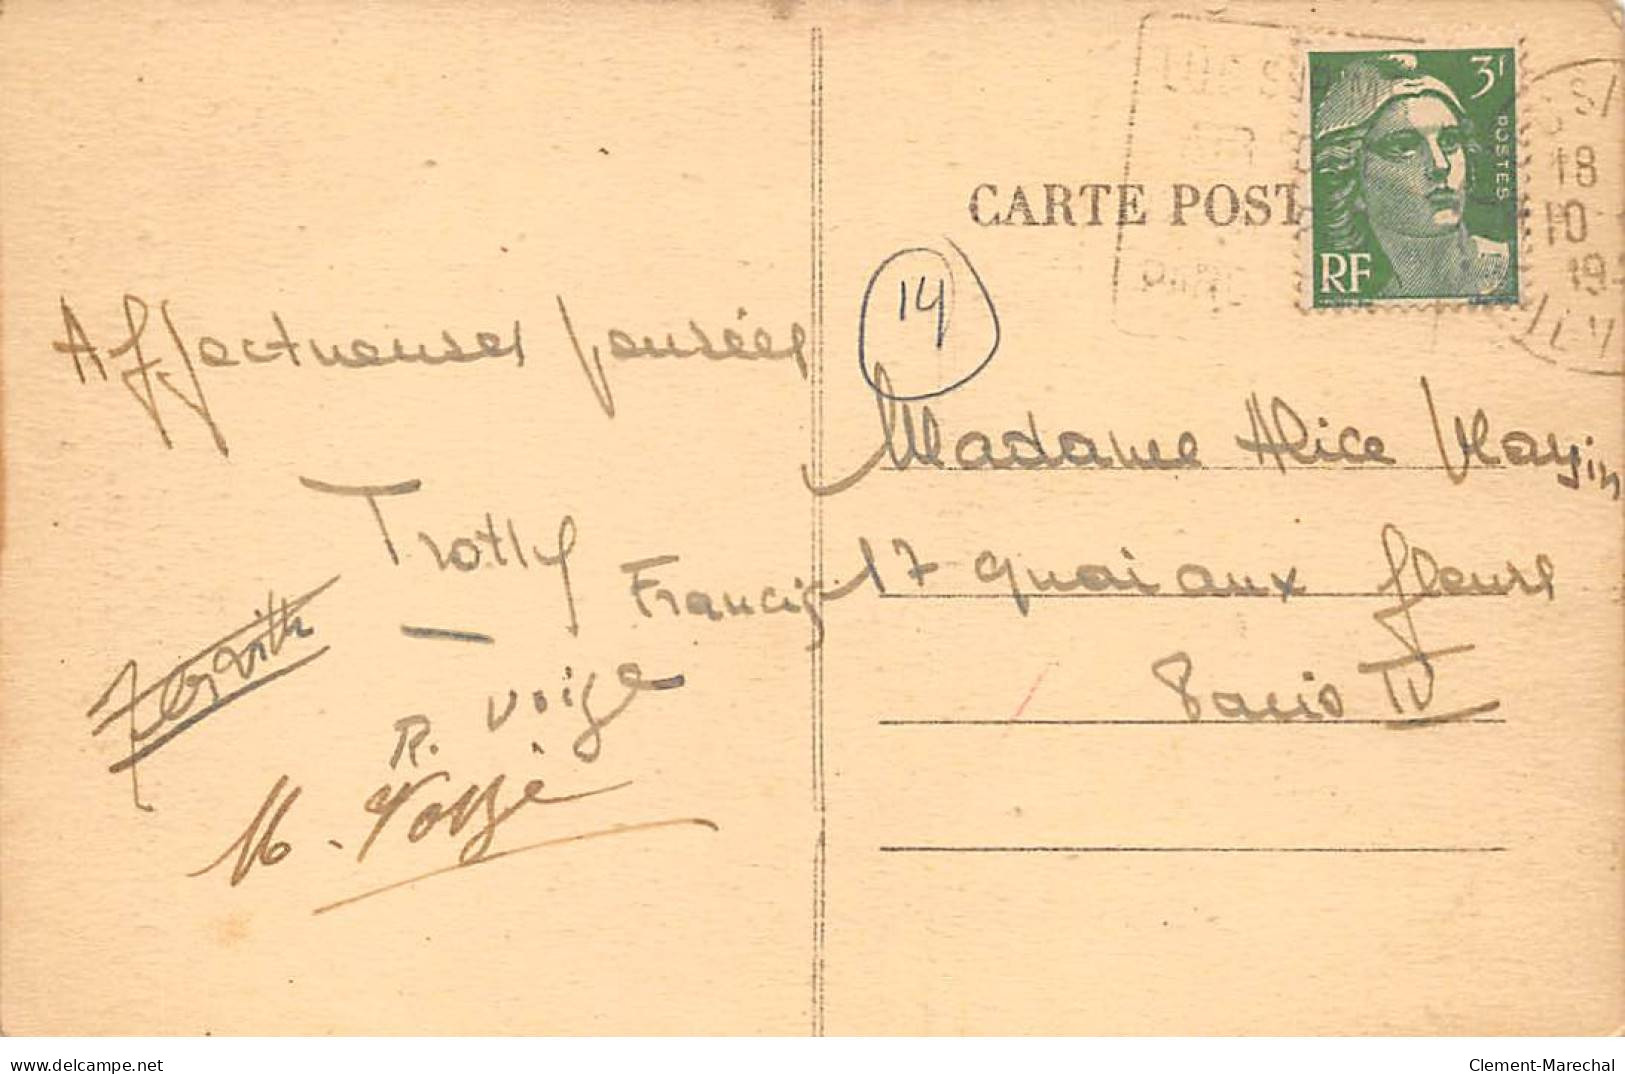 CARTE POST
3F
POSTES
RF
LUC SUR MER
18
10
19
14
Affectueuses pensées
Trotty
Francis
R. Voize
M. Voize
Madame Alice
17 quai aux fleurs
Paris IV
delcampe.net
Clement-Marechal